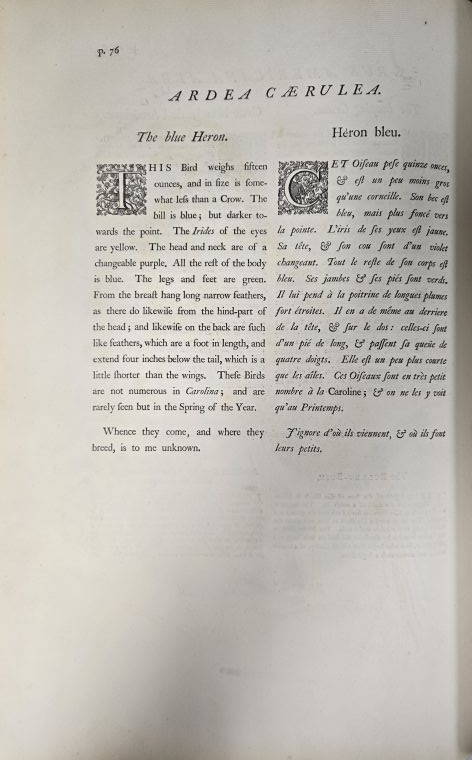 p. 76
ARDEA CÆRULEA.
The blue Heron.
THIS Bird weighs fifteen
ounces, and in ſize is ſome-
what leſs than a Crow. The
bill is blue; but darker to-
wards the point. The Irides of the eyes
are yellow. The head and neck are of a
changeable purple. All the reſt of the body
is blue. The legs and feet are green.
From the breaſt hang long narrow feathers,
as there do likewiſe from the hind-part of
the head; and likewiſe on the back are ſuch
like feathers, which are a foot in length, and
extend four inches below the tail, which is a
little ſhorter than the wings. Theſe Birds
are not numerous in Carolina; and are
rarely ſeen but in the Spring of the Year.
Whence they come, and where they
breed, is to me unknown.
Héron bleu.
CET Oiſeau peſe quinze onces,
& eſt un peu moins gros
qu'une corneille. Son bec eſt
bleu, mais plus foncé vers
la pointe. L'iris de ſes yeux eſt jaune.
Sa tête, & ſon cou ſont d'un violet
changeant. Tout le reſte de ſon corps eſt
bleu. Ses jambes & ſes piés ſont verds.
Il lui pend à la poitrine de longues plumes
fort étroites. Il en a de même au derriere
de la tête, & ſur le dos: celles-ci ſont
d'un pié de long, & paſſent ſa queüe de
quatre doigts. Elle eſt un peu plus courte
que les aîles. Ces Oiſeaux ſont en très petit
nombre à la Caroline; & on ne les y voit
qu'au Printemps.
J'ignore d'où ils viennent, & où ils font
leurs petits.